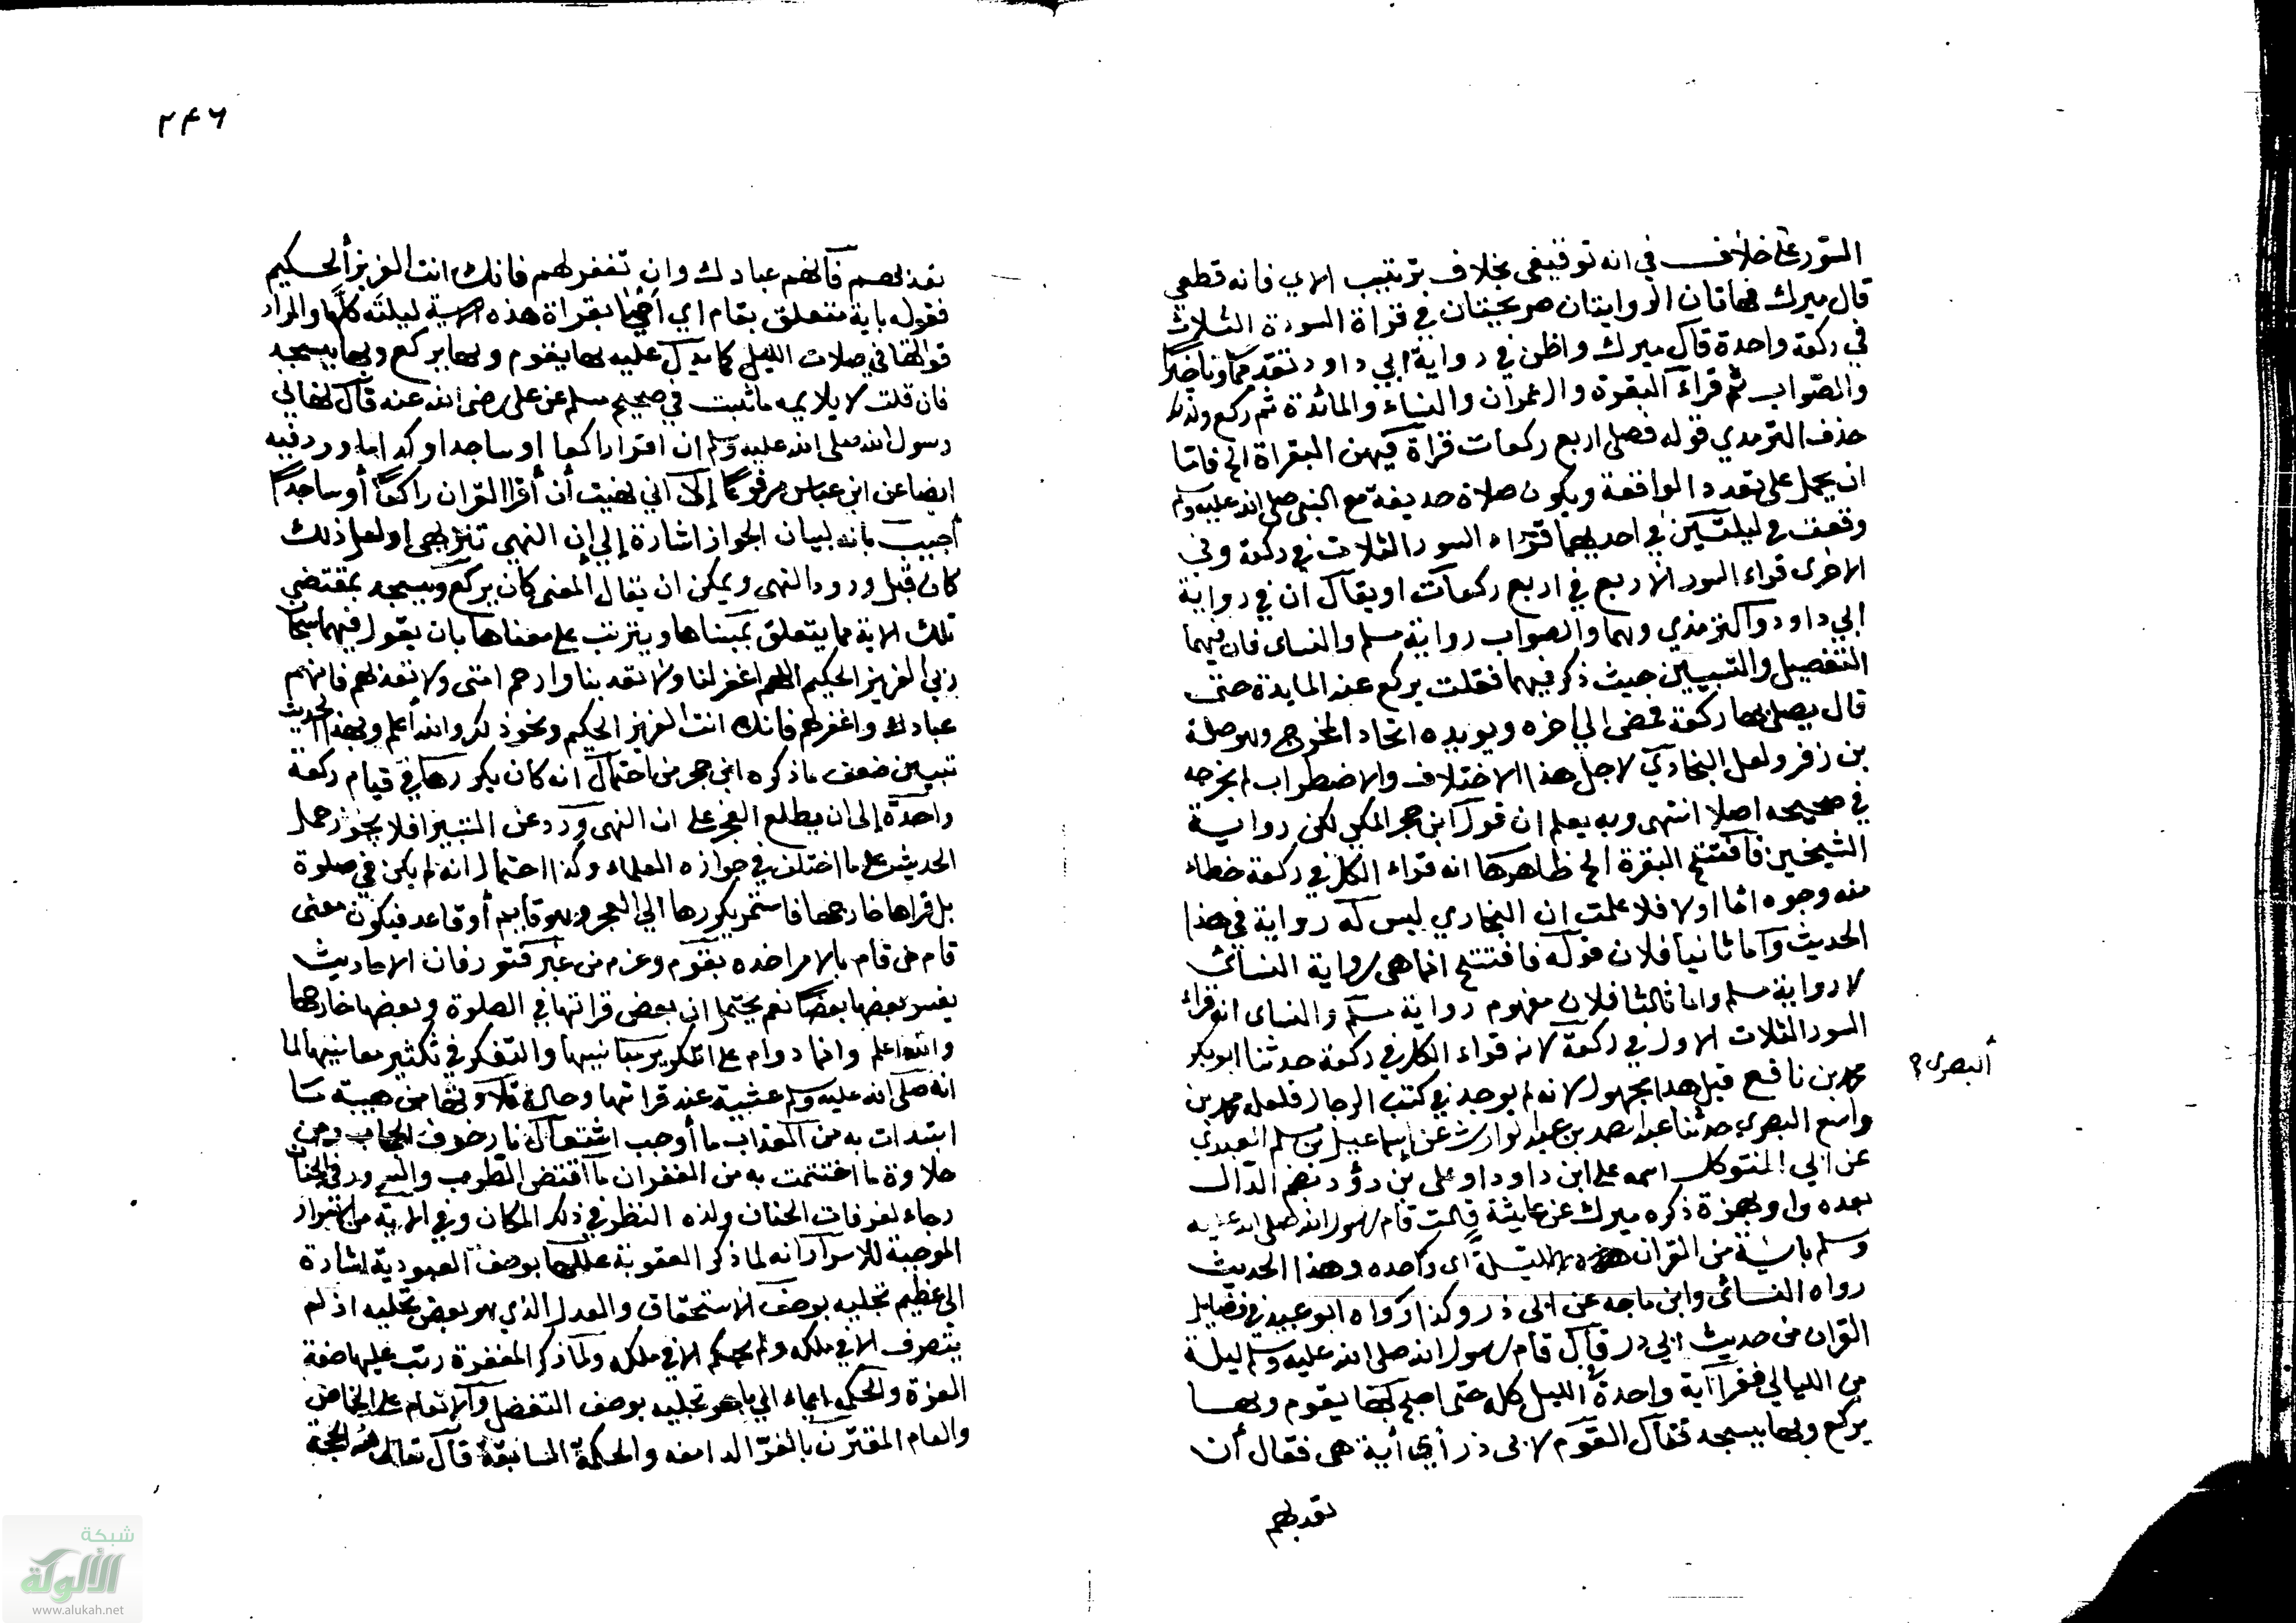 السّور على خلاف في انه توقيفي بخلاف ترتيب الاي فانه قطعي
قال ميرك فهاتان الروايتان صريحتان في قراة السورة الثلاث
في ركعة واحدة قال ميرك واظن في رواية ابي داود تقديما وتاخيرا
والصّواب ثم قراء البقرة وال عمران والنساء والمائدة ثم ركع ولذلك
حذف الترمدي قوله فصلى اربع ركعات قراة فيهن البقراة الخ فاما
ان يحمل على تعدد الواقعة ويكون صلاة حديفة مع النبى صلى الله عليه وسلم
وقعت في ليلتين في احديهما قراء السور الثلاث في ركعة وفى
الاخرى قراء السور الاربع في اربع ركعات او يقال ان في رواية
ابي داود والترمذي وهما والصواب رواية مسلم والنساى فان فيهما
التفصيل والتبيين حيث ذكر فيهما فقلت يركع عند المايدة حتى
قال يصلى بها ركعة فمضى الي اخره ويويده اتحاد المخرج وهو صلة
بن زفر ولعل البخاري لاجل هذا الاختلاف والاضطراب لم يخرجه
في صحيحه اصلا انتهى وبه يعلم ان قول ابن حجر المكي لكن رواية
الشيخين فافتتح البقرة الخ ظاهرها انه قراء الكل في ركعة خطاء
منه وجوه اما اولا فلا علمت ان البخاري ليس له رواية في هذا
الحديث واما ثانيا فلان قوله فافتتح انما هى رواية النسائى
لا رواية مسلم واما ثالثا فلان مفهوم رواية مسلم والنساى انه قراء
السور الثلات الاول في ركعة لانه قراء الكل في ركعة حدثنا ابو بكر
محمد بن نافع قيل هدا مجهول لانه لم يوجد في كتب الرجال فلعله محمد بن
واسع البصري حدثنا عبد الصمد بن عبد الوارث عن اسماعيل بن مسلم العبدي
عن ابي المتوكل اسمه على ابن داود او على بن دؤد بضم الدال
بعده واو بهمزة ذكره ميرك عن عايشة قالت قام رسول الله صلى الله عليه
وسلم باية من القران ليلة اى واحده وهذا الحديث
رواه النسائى وابن ماجه عن ابى ذر وكذا رواه ابو عبيد في فضايل
القران من حديث ابي در قال قام رسول الله صلى الله عليه وسلم ليلة
من الليالي فقرا آية واحدة الليل كله حتى اصبح بها يقوم وبها
يركع وبها يسجد فقال القوم لابى ذر أي أية هى فقال أن
تعدبهم
البصرى؟
٢٤٦
تعذبهم فانهم عبادك وان تغفر لهم فانك انت العزيز الحكيم
فقوله باية متعلق بقام اي احيا بقراة هذه الاية ليلته كلها والمراد
قرائتها في صلات الليل كما يدل عليه بها يقوم وبها يركع وبها يسجد
فان قلت لا يلايمه ما ثبت في صحيح مسلم عن على رضى الله عنه قال نهانى
رسول الله صلى الله عليه وسلم ان اقرا راكعا او ساجدا وكدا ما ورد فيه
ايضا عن ابن عباس مرفوعًا إلا اني نهيت أن أقرا القران راكعًا أو ساجدًا
أجيب بانه لبيان الجواز اشارة إلي إن النهى تنزيهى او لعل ذلك
كان قبل ورود النهى ويمكن ان يقال المعنى كان يركع ويسجد بمقتضى
تلك الاية مما يتعلق بمبناها ويترتب على معناها بان يقول فيهما سبحان
ربي العزيز الحكيم اللهم اغفر لنا ولا تعدبنا وارحم امتى ولا تعذبهم فانهم
عبادك واغفر لهم فانك انت العزيز الحكيم ونحو ذلك والله أعلم وبهذا الحديث
تبين ضعف ماذكره ابن حجر من احتمال انه كان يكررها في قيام ركعة
واحدة إلى ان يطلع الفجر على ان النهى ورد عن البتيرا فلا يجوز حمل
الحديث على ما اختلف في جوازه العلماء وكذا احتمال انه لم يكن في صلوة
بل قراها خارجها فاستمر يكررها الي الفجر وهو قايم أو قاعد فيكون معنى
قام من قام بالامر اخده بقوم وعزم من غير فتور فان الاحاديث
يفسر بعضها بعضًا نعم يحتمل ان بعض قراتها في الصلوة وبعضها خارجها
والله اعلم وانما دوام على تكرير مبانيها والتفكر في تكثير معانيها لما
انه صلى الله عليه وسلم غشيه عند قراتها وحالة تلاوتها من هيبة ما
ابتدات به من العذاب ما أوجب اشتعال نار خوف الحجاب ومن
حلاوة ما اختتمت به من الغفران ما اقتضى الطرب والسرور في الجنان
رجاء لغرفات الجنان ولذه النظر في ذلك المكان وفي الاية من الاسرار
الموجبة للاسرار انه لما ذكر العقوبة عللها بوصف العبودية اشارة
الى عظيم تجليه بوصف الاستحقاق والعدل الذي هو بعض تجليه اذ لم
يتصرف الا في ملكه ولم يحكم الا في ملكه ولما ذكر المغفرة رتب عليها صفة
العزة والحكمه ايماء الي باهر تجليه بوصف التفضل والانعام على الخاص
والعام المقترن بالعزّ الدامغه والحكمة السابقة قال تعالى الحجة
شبكة
الألوكة
www.alukah.net